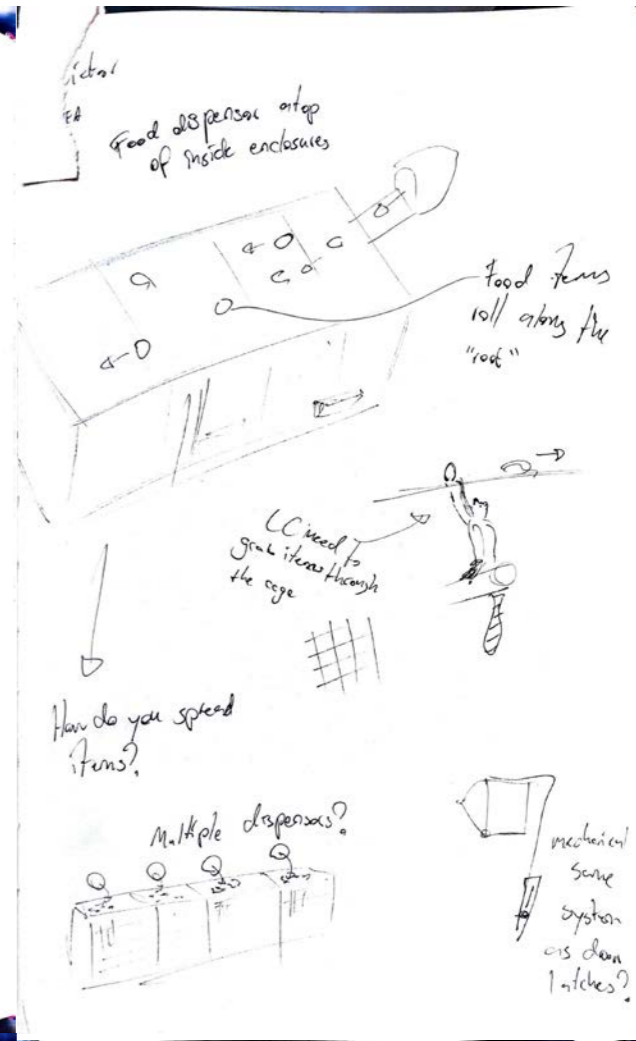 ictor
EA
Food dispensor atop
of inside enclosures
Food items
roll along the
"roof"
LC need to
grab items through
the cage
How do you spread
items?
Multiple dispensors?
mechanical
same
system
as door
latches?